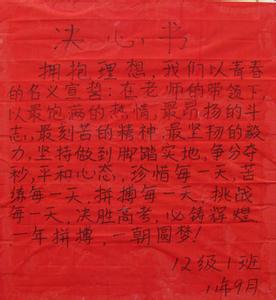 决心书
拥抱理想，我们以青春
的名义宣誓：在老师的带领下
以最饱满的热情，最昂扬的斗
志，最刻苦的精神，最坚扬的毅
力，坚持做到脚踏实地，争分夺
秒，平和心态，珍惜每一天，苦
练每一天，拼搏每一天，挑战
每一天，决胜高考，必铸辉煌
一年拼搏，一朝圆梦！
12级1班
11年9月